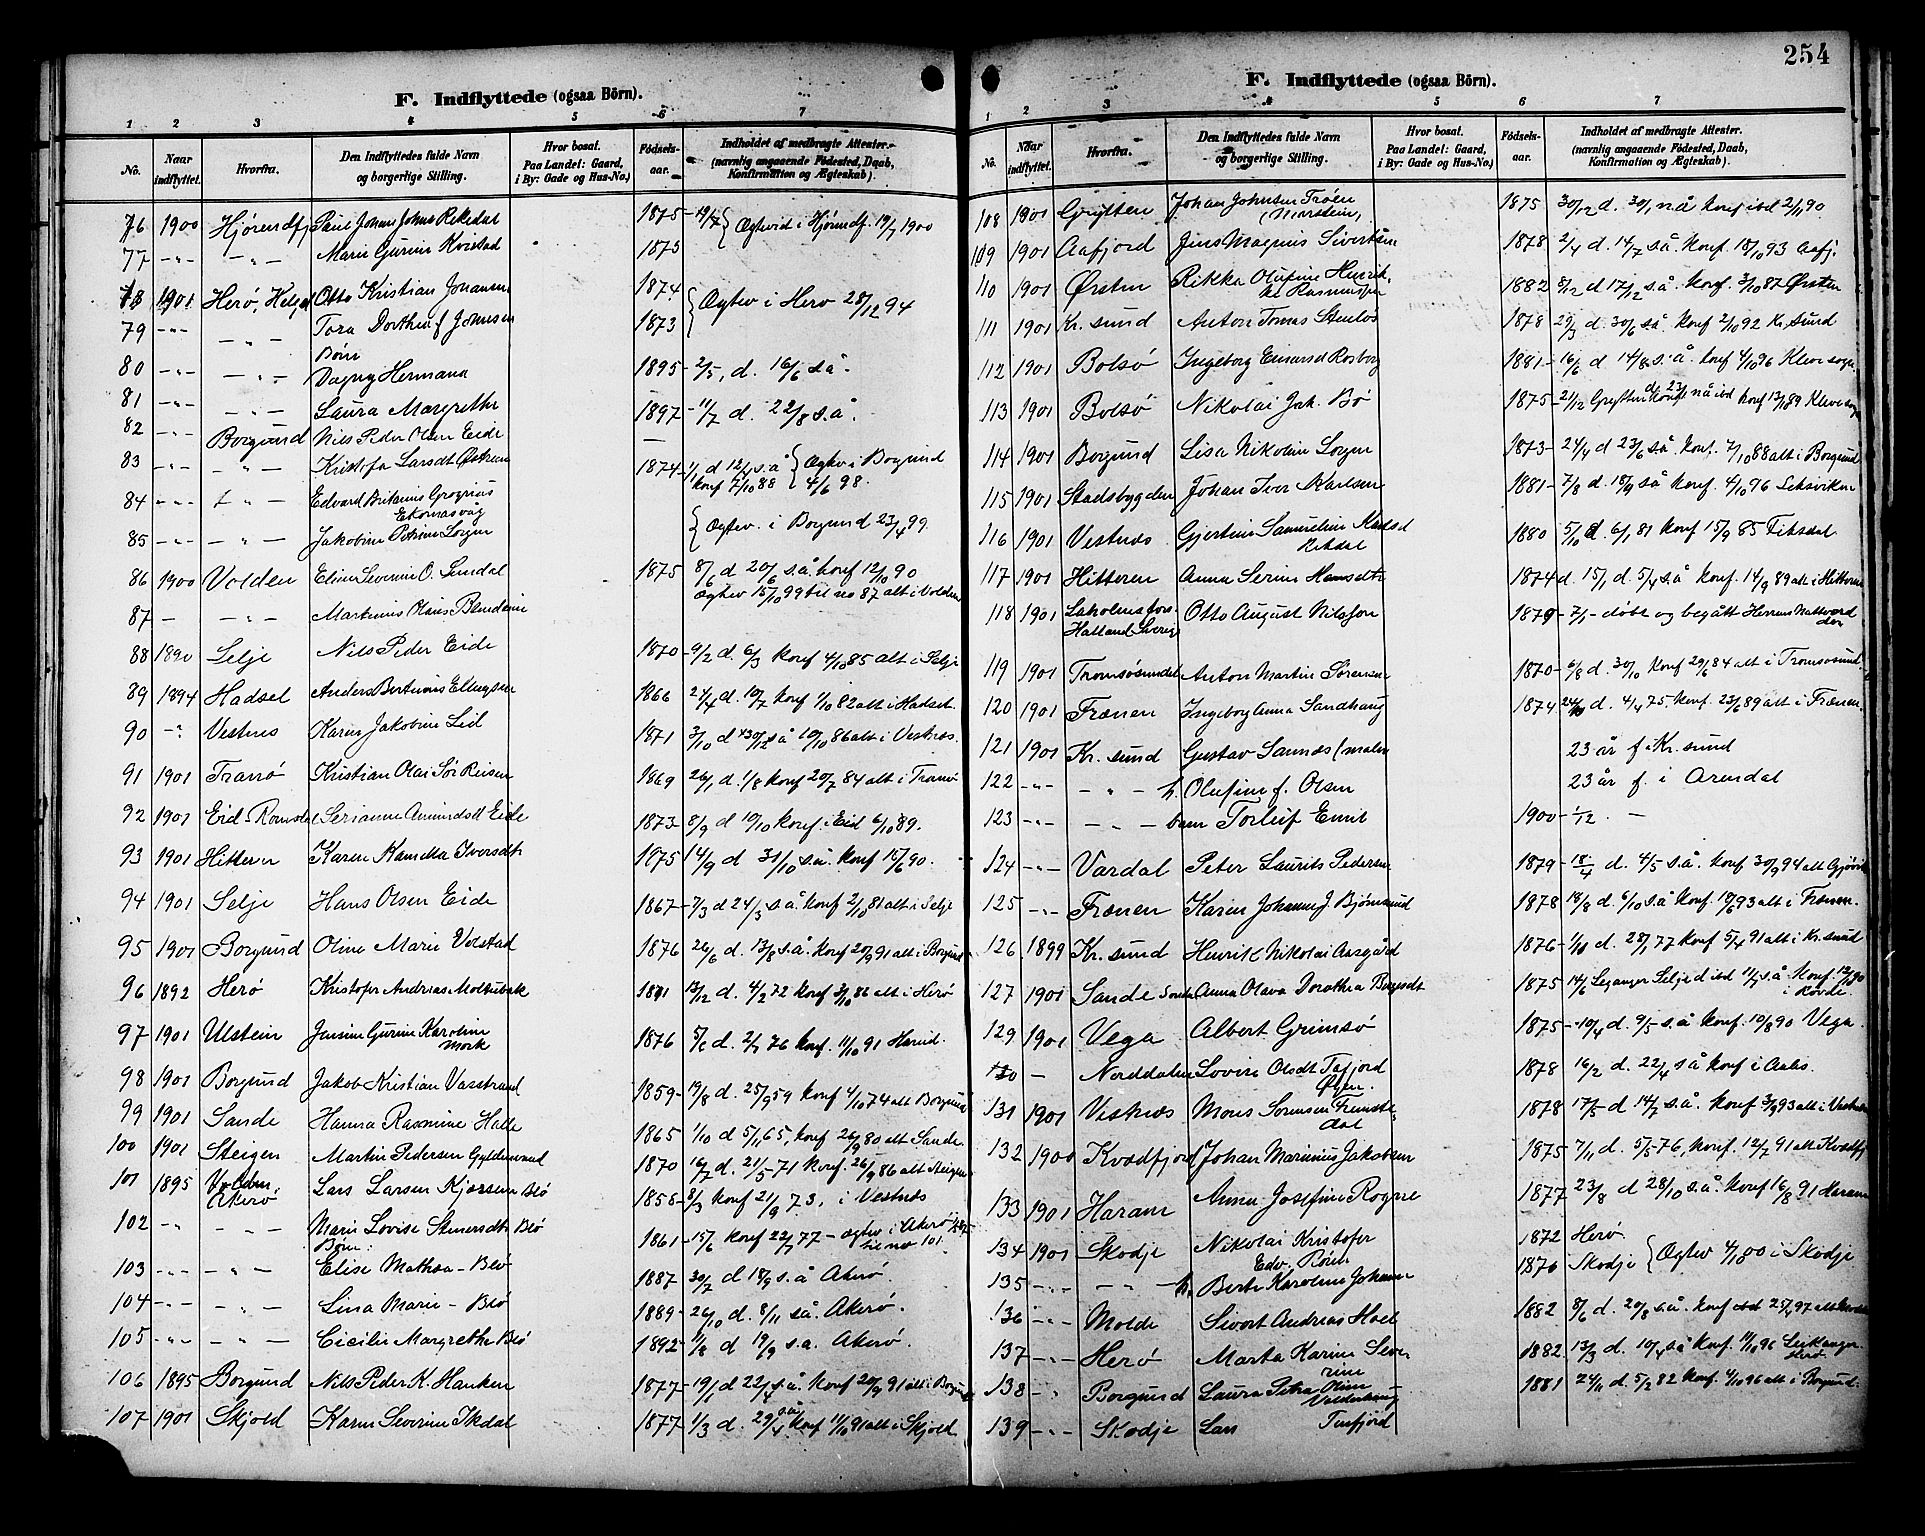 254
F. Indflyttede (ogsaa Börn).
1 2 3 4 5 6 7
No. Naar indflyttet. Hvorfra. Den Indflyttedes fulde Navn og borgerlige Stilling. Hvor bosat. Paa Landet: Gaard, i By: Gade og Hus-No.) Födsels-aar. Indholdet af medbragte Attester. (navnlig angaaende Födested, Daab, Konfirmation og Ægteskab).
76 1900 Hjørendfj Paul Johan Johns Rekedal 1875 - 19/7 { Ægtevid i Hjørundf. 19/7 1900
77 -"- -"- Marie Gurine Kvistad 1875
78 1901 Herø, Helgel Otto Kristian Johansen 1874 { Ægtev i Herø 28/12 94
79 -"- -"- Tora Dorthea f Johnsen 1873
Børn
80 -"- -"- Dagny Hermana 1895 - 2/5, d. 16/6 s å.
81 -"- -"- Laura Margrethe 1897 - 11/7 d. 22/8 s.å.
82 -"- Borgund Nils Peder Olsen Eide —
83 -"- -"- Kristofa Larsdt Østrem 1874 - 1/1 d 12/4 s.å konf 7/10 88 { Ægtev i Borgund 4/6 98.
84 -"- -"- Edvard Britanius Grogsius Ekornasvag
{ Ægtev. i Borgund 23/4 99.
85 -"- -"- Jakobine Petrine Sorgen
86 1900 Volden Eline Severine O. Sundal 1875 8/6 d 20/6 s.å. konf 12/10 90
Ægtev 15/10 99 til no 87 alt i Volden
87 - -"- Martinus Olaus Blindeim
88 1890 Selje Nils Peder Eide 1870 - 9/2 d. 6/3 konf 4/10 85 alt i Selje
89 1894 Hadsel Anders Bertinius Ellingsen 1866 24/4 d. 10/7 konf 1/10 82 alt i Hadsel.
90 -"- Vestnes Karen Jakobine Lid 1871 3/10 d 30/12 så 10/10 86 alt i Vestnes.
91 1901 Tranø Kristian Olai Sør Reisen 1869 26/1 d. 1/8 konf 20/7 84 alt i Tranø
92 1901 Eid-Romsdal Serianne Amundsdt Eide 1873 - 8/9 d 19/10 konf. i Eid 6/10 89.
93 1901 Hitteren Karen Kamilla Iversdt 1875 14/9 d 31/10 s.å. konf 15/6 90.
94 1901 Selje Hans Olsen Eide 1867 - 7/3 d 24/3 s.å. konf 2/10 81 alt i Selje
95 1901 Borgund Oline Marie Volstad 1876 26/6 d. 13/8 s.å. konf 20/9 91 alt i Borgund
96 1892 Herø Kristofer Andreas Moltubak 1871 13/12 d. 4/2 72 konf 3/10 86 alt i Herø
97 1901 Ulstein Jensine Gurine Karoline Mork 1876 5/6 d. 2/7 76 konf. 11/10 91 Hareid.
98 1901 Borgund Jakob Kristian Vasstrand 1859 - 19/8 d. 25/9 59 konf 4/10 74 alt Borgund
99 1901 Sande Hanna Rasmine Halle 1865 1/10 d 5/11 65, konf 26/9 80 alt Sande.
100 1901 Steigen Martin Pedersen Gyldenvand 1870 16/7 d. 21/5 71 konf. 26/9 86 alt Steigen
101 1895 Akerø Lars Larsen Kjørsem Blø 1855 - 8/3 konf 21/9 73, i Vestnæs
102 " -"- Marie Lovise Stenersdt Blø 1861 - 15/6 konf 22/7 77 - ægtev i Akerø til no 101.
Børn:
103 -"- -"- Elise Mathea - Blø 1887 30/7 d 18/9 s.å Akerø.
104 -"- -"- Lina Marie - Blø 1889 - 26/10 d. 8/11 så. Akerø.
105 -"- -"- Cicilie Margrethe Blø 1892 - 1/8 d 19/9 s.a. Akerø.
106 1895 Borgund Nils Peder K. Hanken 1877 - 19/1 d 22/4 s.å. konf 20/9 91 alt i Borgund
107 1901 Skjold Karen Severine Ikdal 1877 1/3 d. 29/4 s.å konf 11/10 91 alt i Skjold
F. Indflyttede (ogsaa Börn).
1 2 3 4 5 6 7
No. Naar indflyttet. Hvorfra. Den Indflyttedes fulde Navn og borgerlige Stilling. Hvor bosat. Paa Landet: Gaard, i By: Gade og Hus-No.) Födsels-aar. Indholdet af medbragte Attester. (navnlig angaaende Födested, Daab, Konfirmation og Ægteskab).
108 1901 Grytten Johan Johnsen Trøen (Marstein) 1875 30/12 d. 30/1 n.å konf ibd 2/11 90
109 1901 Aafjord Jens Magnus Sivertsen 1878 2/4 d. 14/7 s.å. konf. 18/10 93 Aafj.
110 1901 Ørsten Rikka Olufine Henrikke Rasmussen 1882 8/12 d 17/12 s.å. konf. 3/10 87 Ørsten
111 1901 Kr. sund Anton Tomas Stenløs 1878 29/3 d. 30/6 så konf 2/10 92 Kr. sund
112 1901 Bolsø Ingeborg Einarsd Rosberg 1881 - 16/6 d 14/8 s.å. konf 4/10 96 Kleve sogn
113 1901 Bolsø Nikolai Joh. Bø 1875 - 2/12 Grytten d. 23/1 nå ibd konf 13/10 89 Kleve sogn
114 1901 Borgund Lisa Nikoline Sorgen 1873 - 24/4 d 23/6 s.å. konf. 7/10 88 alt i Borgund
115 1901 Stadsbygden Johan Iver Karlsen 1881 - 7/8 d. 18/9 så konf. 4/10 96 Leksviken
116 1901 Vestnæs Gjertine Samueline Karlsd Rekdal 1880 5/10 d 6/1 81 konf 15/9 85 Fiksdal
117 1901 Hitteren Anna Serine Hansdtr 1874 d. 15/1 d. 5/4 s.å konf. 14/9 89 alt i Hitteren
118 1901 Laholmsfors Halland Sverige Otto August Nilsson 1879 - 7/1 - døbt og begått Herrens Nattvard den
119 1901 Tromsøsundet Anton Martin Sørensen 1870 - 6/8 d. 30/10 konf 29/6 84 alt i Tromsøsund.
120 1901 Frænen Ingeborg Anna Sandhaug 1874 24/10 d. 4/4 75. konf. 23/6 89 alt i Frænen.
121 1901 Kr. sund Gustav Sannæs (maler 23 år f. i Kr. sund
122 -"- -"- h. Olufine f. Olsen 23 år f. i Arendal
123 -"- -"- barn Torleif Emil 1900 - 1/12 —
124 -"- Vardal Peter Laurits Pedersen 1879 - 18/4 d. 4/5 s.å. konf 30/9 94 alt Gjøvik
125 -"- Frænen Karen Johanne J. Bjørnsund 1878 18/8 d. 6/10 s.å konf 18/6 93 alt i Frænen.
126 1899 Kr. sund Henrik Nikolai Aasgård 1876 - 1/11 d. 28/1 77 konf 5/4 91 alt i Kr. sund
127 1901 Sande Anna Olava Dorothea Bergsdt 1875 14/6 Leganger Selje d ibd 11/7 s.å. konf. 12/10 90 i Rovde.
129 1901 Vega Albert Grimsø 1875 - 10/4 d. 9/5 s.å konf. 10/8 90 Vega.
130 - Norddalen Lovise Olsdt Tafjord Øien. 1878 16/2 d. 22/4 s.å konf i Aales.
131 1901 Vestnæs Mons Sorensen Fremstedal 1878 17/5 d. 14/7 s.å. konf 3/9 93 alt i Vestnæs
132 1900 Kvædfjord Johan Marinius Jakobsen 1875 7/11 d. 5/5 - 76, konf. 12/7 91 alt Kvædfj
133 1901 Haram Anna Josefine Rogne 1877 23/8 d 28/10 s.å. konf 16/8 91 Haram
134 1901 Skodje Nikolai Kristofer Edv. Rønen 1872 Herø. { Ægtev 4/1 00 i Skodje
135 -"- -"- h. Berte Karoline Johanne 1876 Skodje
136 -"- Molde Sivert Andreas Hoel 1882 8/6 d. 20/8 s.å. konf ibd 25/4 97 alt Molde
137 -"- Herø Marta Karine Severine 1882 13/3 d. 10/4 så konf. 11/10 96 Leikanger Herø.
138 -"- Borgund Laura Petra Oline Valderhaug 1881 24/11 d. 5/2 82 konf. 4/10 96 alt i Borgund.
139 -"- Skodje Lars Tenfjord